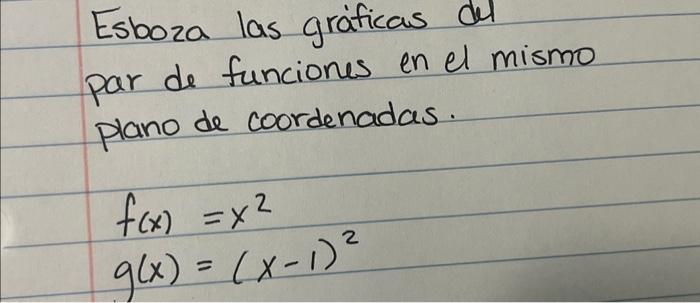 Esboza las gráficas del
par de funciones en el mismo
plano de coordenadas.
f(x) = x²
g(x) = (x-1)²